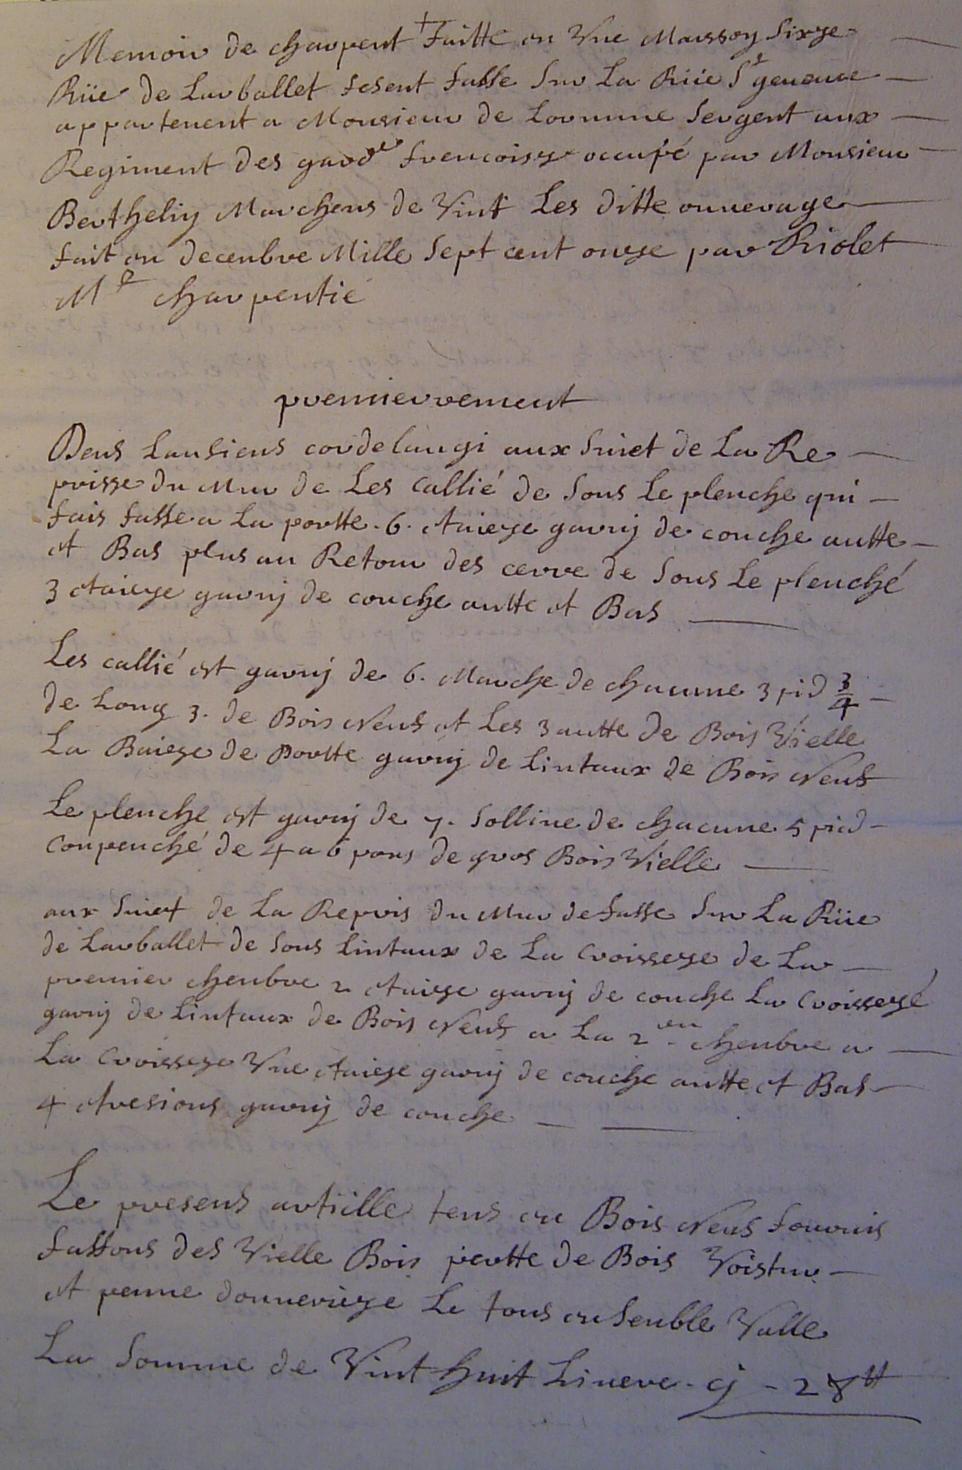 Memoir de charpent faitte en Vne Maisson sixze
Rüe de Larballet fesent fasse sur La Rüe St geneuue
appartenent a Monsieur de Lormme sergent aux
Regiment des garde francoisse occupé par Monsieur
Berthelin Marchens de Vint Les ditte ouuerage
fait en decenbre Mille sept cent onze par Riolet
Me charpentié
premierrement
Dens Lansiens cordelangi aux suiet de La Re
prisse du Mur de Les callié de sous Le plenche qui
fais fasse a La portte 6 etaieze garnij de couche autte
et Bas plus au Retour des cerre de sous Le plenché
3 etaieze garnij de couche autte et Bas
Les callié est garnij de 6. Marche de chacune 3 pid 3/4
de Long 3. de Bois neuf et Les 3 autte de Bois Vielle
La Baieze de Portte garnij de Lintaux de Bois neuf
Le plenche est garnij de 7. solline de chacune 5 pied
coupenché de 4 a 6 pous de gros Bois Vielle
aux suiet de La Repris du Mur de fasse sur La Rüe
de Larballet de sous Lintaux de La croisseze de La
premier chenbre 2 etaieze garnij de couche La croissezé
garnij de Lintaux de Bois neuf a La 2 em chenbre a
La croisseze Vne etaieze garnij de couche autte et Bas
4 etresions garnij de couche
Le presens artiille tens en Bois neuf fournis
fassons des Vielle Bois pertte de Bois Voistur
et penne donnerieze Le tous ensenble Valle
La somme de Vint huit Liuere cy - 28tt